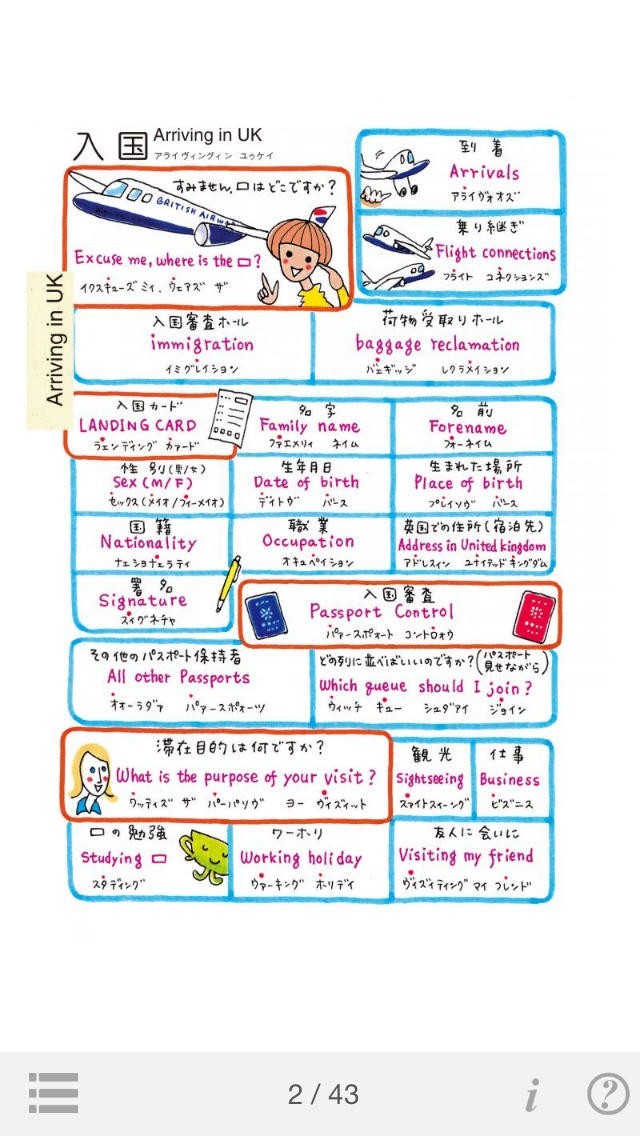 入国 Arriving in UK
アライヴィングィン ユゥケイ
到着
Arrivals
アライヴォオズ
乗り継ぎ
Flight connections
フライト コネクションズ
すみません、□はどこですか?
BRITISH AIRW
Excuse me, where is the □?
イクスキューズ ミィ、ウェアズ ザ
Arriving in UK
入国審査ホール
immigration
イミグレイション
荷物受取りホール
baggage reclamation
バェギッジ レクラメイション
入国カード
LANDING CARD
ラェンディング カァード
名字
Family name
ファエメリィ ネイム
名前
Forename
フォーネイム
性別(男/女)
Sex (M/F)
セックス(メイオ/フィーメイオ)
生年月日
Date of birth
デイトヴ バース
生まれた場所
Place of birth
プレイソヴ バース
国籍
Nationality
ナェショナェラティ
職業
Occupation
オキュペイション
英国での住所(宿泊先)
Address in United kingdom
アドレスィン ユナイテッドキングダム
署名
Signature
スィグネチャ
入国審査
Passport Control
パァースポォート コントロォウ
その他のパスポート保持者
All other Passports
オォーラダァ パァースポォーツ
どの列に並べばいいのですか?(パスポート見せながら)
Which queue should I join?
ウィッチ キュー シュダアイ ジョイン
滞在目的は何ですか?
What is the purpose of your visit?
ワッティズ ザ パーパソヴ ヨー ヴィズィット
観光
Sightseeing
スァイトスィーング
仕事
Business
ビズニス
□の勉強
Studying □
スタディング
ワーホリ
Working holiday
ウァーキング ホリデイ
友人に会いに
Visiting my friend
ヴィズィティング マイ フレンド
2 / 43
i
?